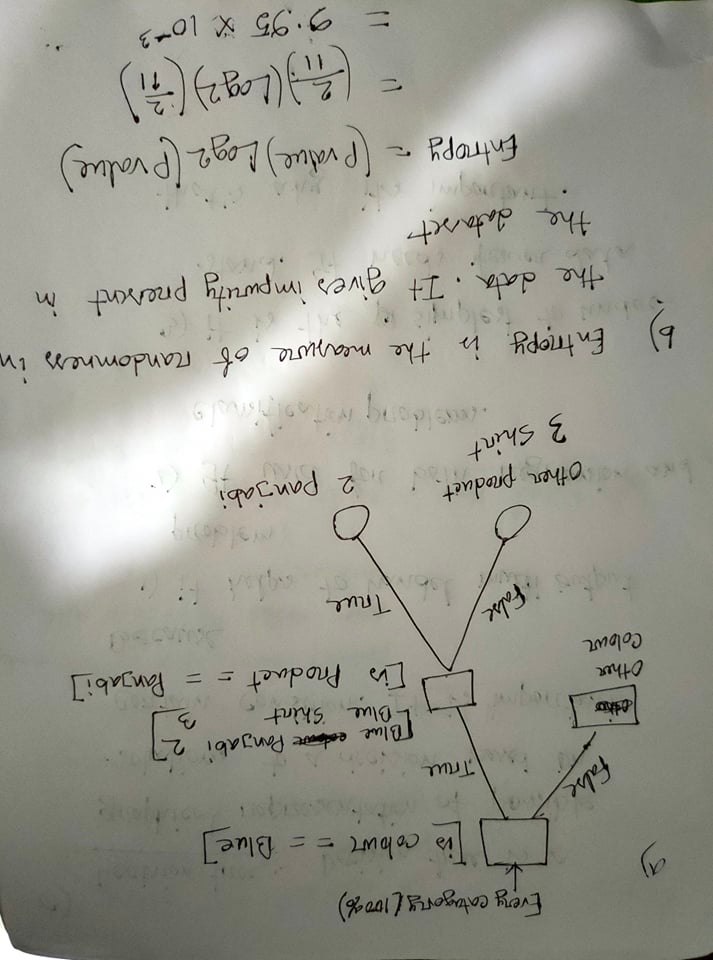 Every catagory (100%)
a)
[is colour == Blue]
False
True
Other
Colour
[Blue Panjabi 2]
[Blue Shirt 3]
[is Product == Panjabi]
False
True
Other product
3 Shirt
2 Panjabi
b) Entropy is the measure of randomness in
the data. It gives impurity present in
the dataset
Entropy = (P value) Log2 (P value)
= (2/11) (Log2) (2/11)
= 9.95 × 10^-3